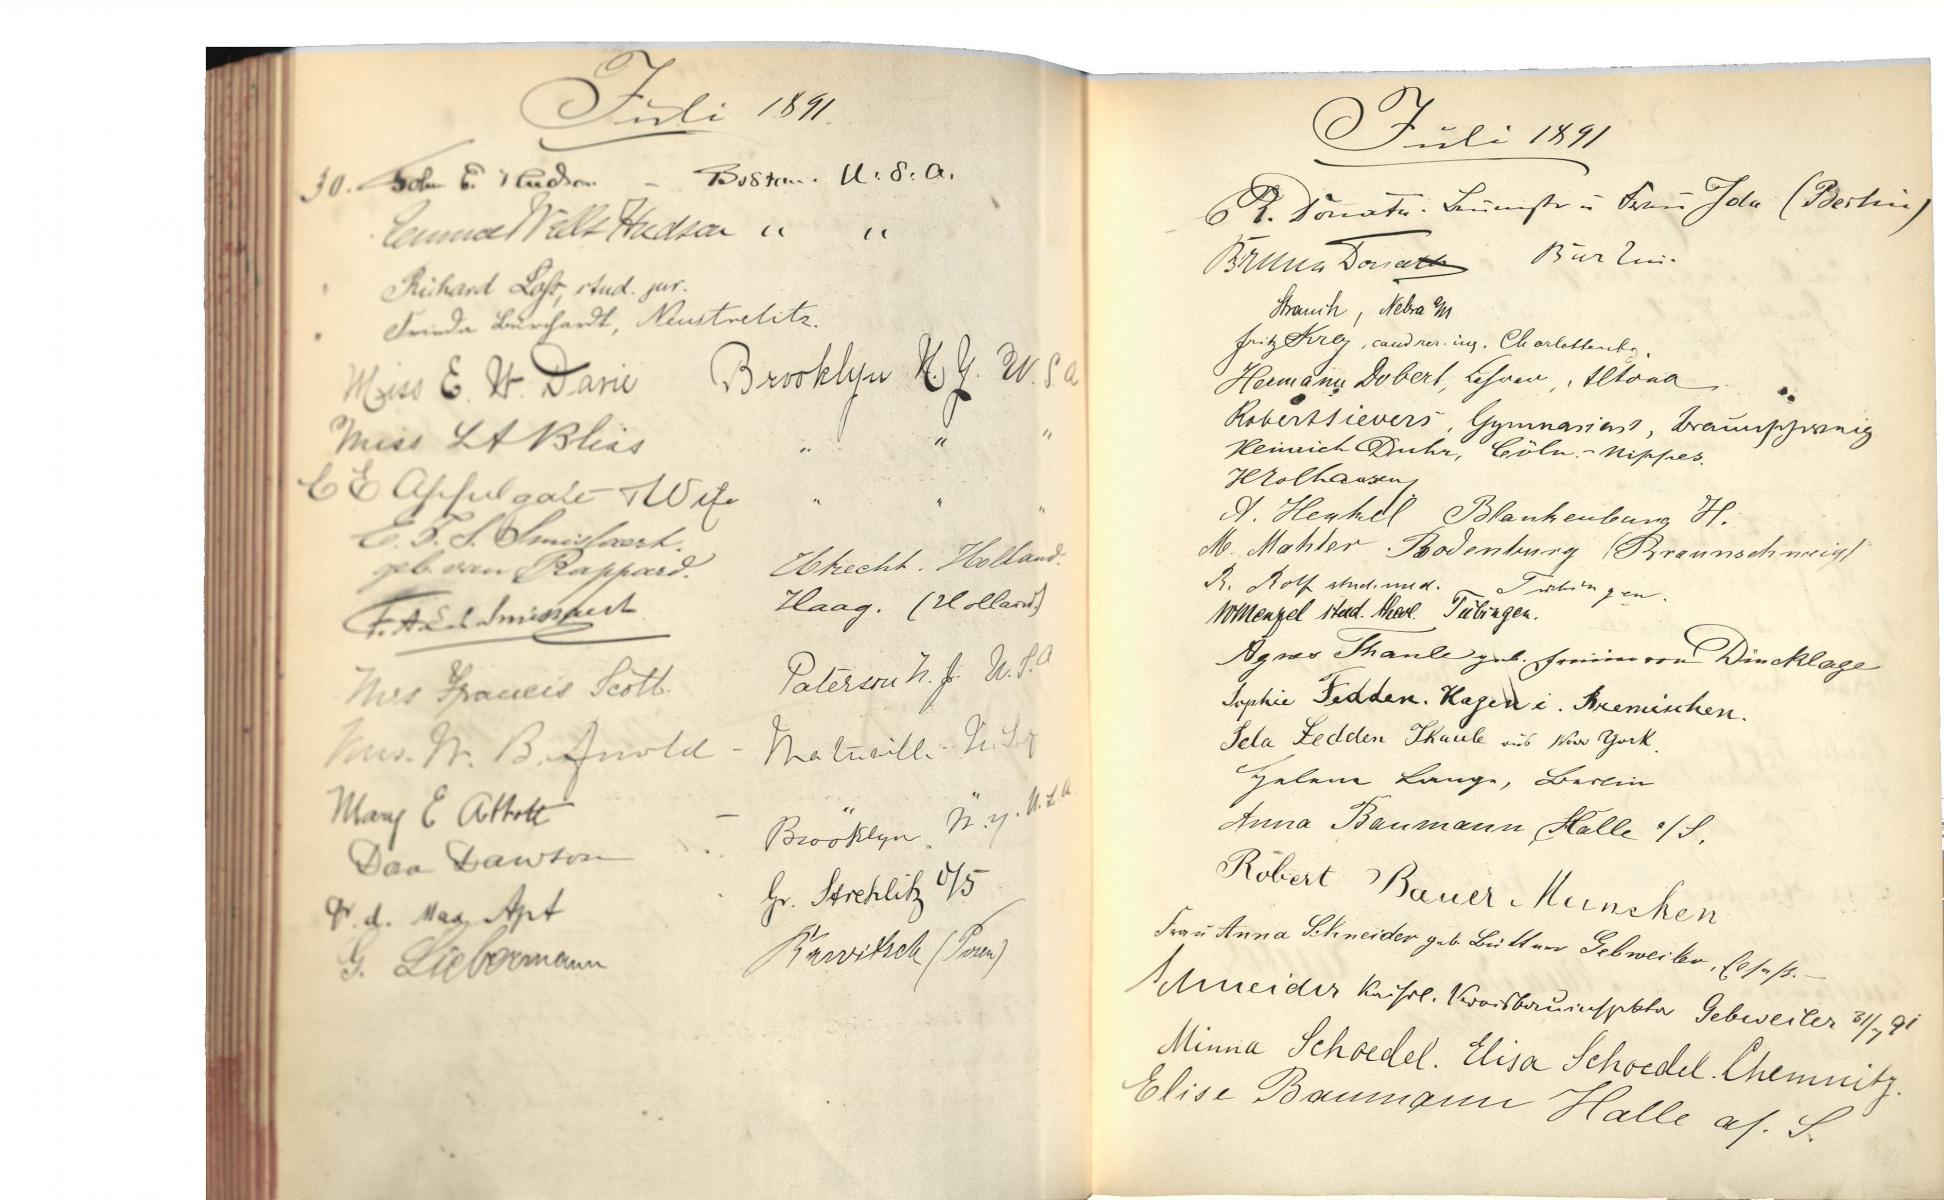 Juli 1891
30. John E. Hudson - Boston. U. S. A.
Emma Wells Hudson " "
Richard Loß, stud. jur.
Frieda Burchardt, Neustrelitz.
Miss E. W. Davie Brooklyn N. Y. U. S. A
Miss L A Bliss " " "
C E Appelgate & Wife " " "
E. F. S. Smissaert.
geb. van Rappard. Utrecht. Holland.
Smissaert Haag. (Holland)
Mrs Francis Scott. Paterson N. J. U. S. A
Mrs. W. B. Arnold -
Mary E Abbott - "
Dawson Brooklyn N. Y. U. S. A
Max Apt Gr. Strehlitz O/S
G. Liebermann (Posen)
Juli 1891
R. Donath. u Frau Ida (Berlin)
Bruno Donath Berlin.
Strauch, Nebra a/U
Fritz Krey, cand. rer. ing. Charlottenbg.
Hermann Dobert, Lehrer, Altona
Robert Sievers, Gymnasiast, Braunschweig
Heinrich Duhr, Cöln.-Nippes.
A. Henkel Blankenburg H.
M. Mahler Bodenburg (Braunschweig)
R. Rolf stud. med. Tübingen.
W Menzel stud. theol. Tübingen.
Agnes Thanle geb. Freiin von Dincklage
Sophie Fedden. Hagen i. Bremischen.
Fedden Thanle aus New York.
Helene Lange, Berlin
Anna Baumann, Halle a/S.
Robert Bauer Munchen
Frau Anna Schneider geb. Büttner Gebweiler, Elsaß. -
Schneider Kaiserl. Kreisbauinspektor Gebweiler 31/7 91
Minna Schoedel. Elisa Schoedel. Chemnitz.
Elise Baumann Halle a/. S.